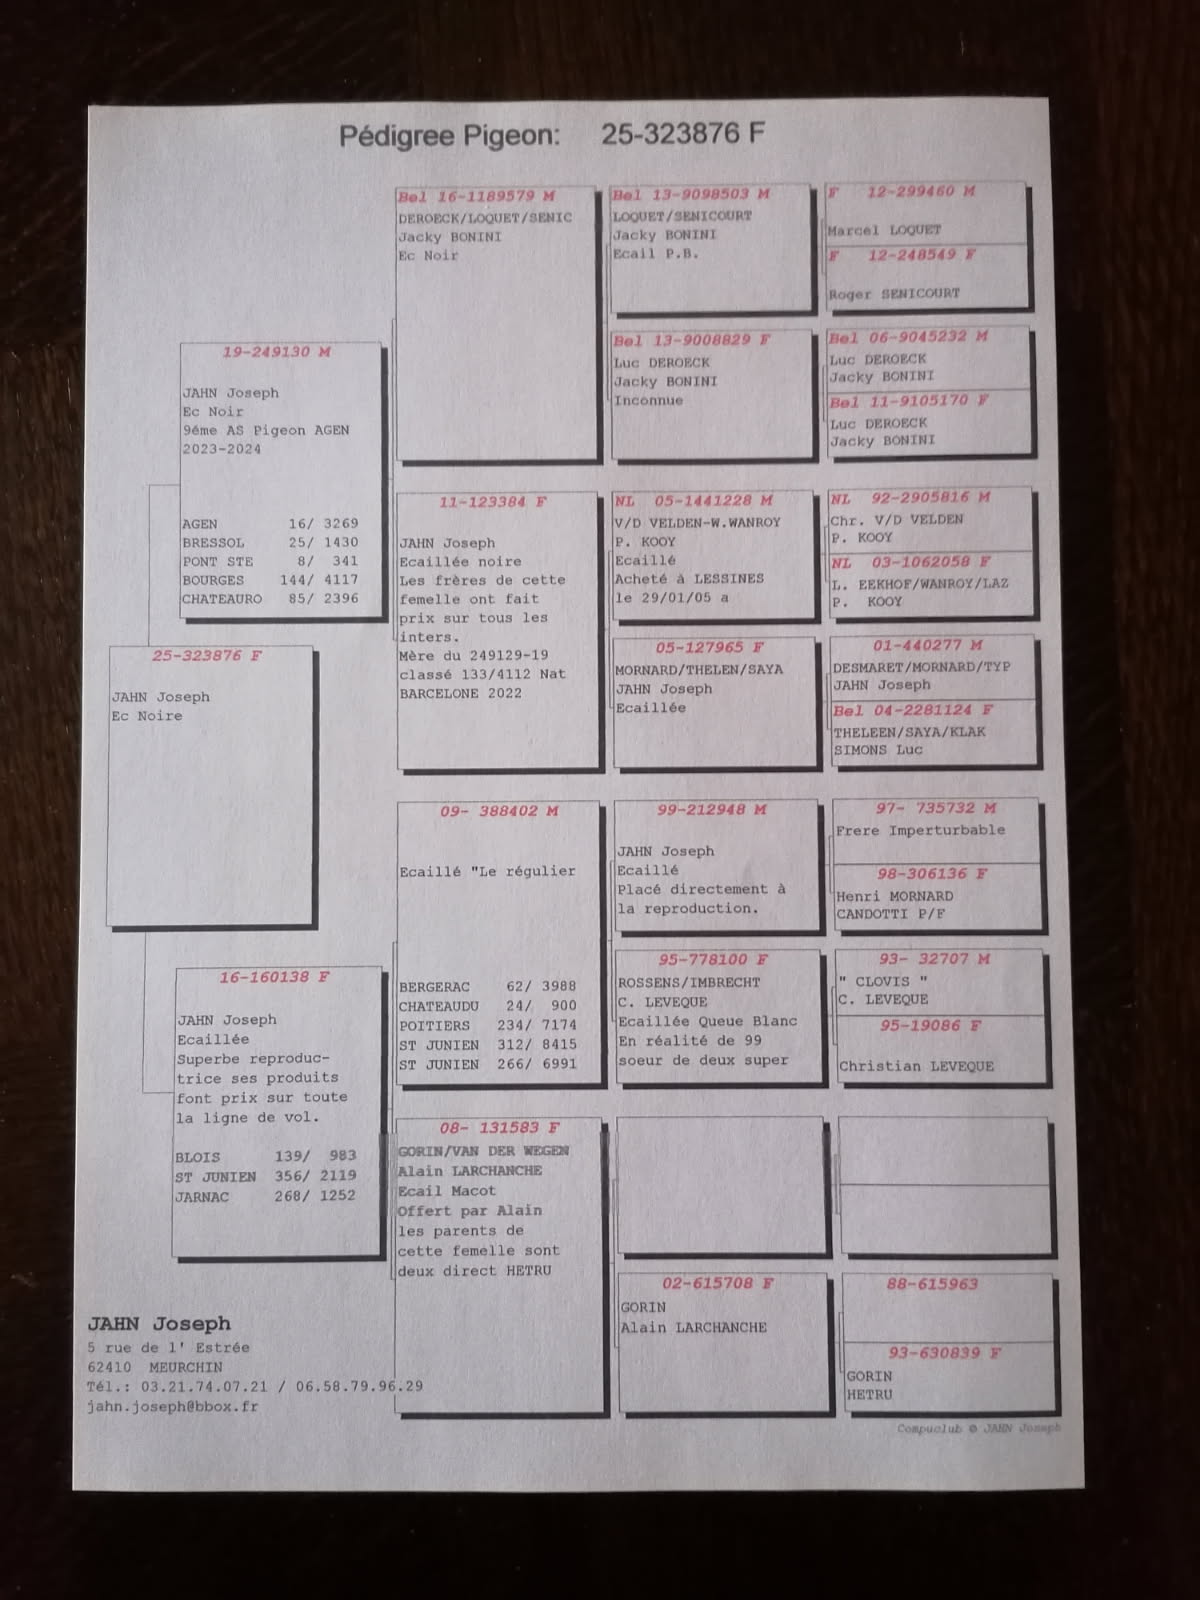 Pédigree Pigeon: 25-323876 F
25-323876 F
JAHN Joseph
Ec Noire
19-249130 M
JAHN Joseph
Ec Noir
9éme AS Pigeon AGEN
2023-2024
AGEN 16/ 3269
BRESSOL 25/ 1430
PONT STE 8/ 341
BOURGES 144/ 4117
CHATEAURO 85/ 2396
16-160138 F
JAHN Joseph
Ecaillée
Superbe reproduc-
trice ses produits
font prix sur toute
la ligne de vol.
BLOIS 139/ 983
ST JUNIEN 356/ 2119
JARNAC 268/ 1252
Bel 16-1189579 M
DEROECK/LOQUET/SENIC
Jacky BONINI
Ec Noir
11-123384 F
JAHN Joseph
Ecaillée noire
Les frères de cette
femelle ont fait
prix sur tous les
inters.
Mère du 249129-19
classé 133/4112 Nat
BARCELONE 2022
09- 388402 M
Ecaillé "Le régulier
BERGERAC 62/ 3988
CHATEAUDU 24/ 900
POITIERS 234/ 7174
ST JUNIEN 312/ 8415
ST JUNIEN 266/ 6991
08- 131583 F
GORIN/VAN DER WEGEN
Alain LARCHANCHE
Ecail Macot
Offert par Alain
les parents de
cette femelle sont
deux direct HETRU
Bel 13-9098503 M
LOQUET/SENICOURT
Jacky BONINI
Ecail P.B.
Bel 13-9008829 F
Luc DEROECK
Jacky BONINI
Inconnue
NL 05-1441228 M
V/D VELDEN-W.WANROY
P. KOOY
Ecaillé
Acheté à LESSINES
le 29/01/05 a
05-127965 F
MORNARD/THELEN/SAYA
JAHN Joseph
Ecaillée
99-212948 M
JAHN Joseph
Ecaillé
Placé directement à
la reproduction.
95-778100 F
ROSSENS/IMBRECHT
C. LEVEQUE
Ecaillée Queue Blanc
En réalité de 99
soeur de deux super
02-615708 F
GORIN
Alain LARCHANCHE
F 12-299460 M
Marcel LOQUET
F 12-248549 F
Roger SENICOURT
Bel 06-9045232 M
Luc DEROECK
Jacky BONINI
Bel 11-9105170 F
Luc DEROECK
Jacky BONINI
NL 92-2905816 M
Chr. V/D VELDEN
P. KOOY
NL 03-1062058 F
L. EEKHOF/WANROY/LAZ
P. KOOY
01-440277 M
DESMARET/MORNARD/TYP
JAHN Joseph
Bel 04-2281124 F
THELEEN/SAYA/KLAK
SIMONS Luc
97- 735732 M
Frere Imperturbable
98-306136 F
Henri MORNARD
CANDOTTI P/F
93- 32707 M
" CLOVIS "
C. LEVEQUE
95-19086 F
Christian LEVEQUE
88-615963
93-630839 F
GORIN
HETRU
JAHN Joseph
5 rue de l' Estrée
62410 MEURCHIN
Tél.: 03.21.74.07.21 / 06.58.79.96.29
jahn.joseph@bbox.fr
Compuclub © JAHN Joseph